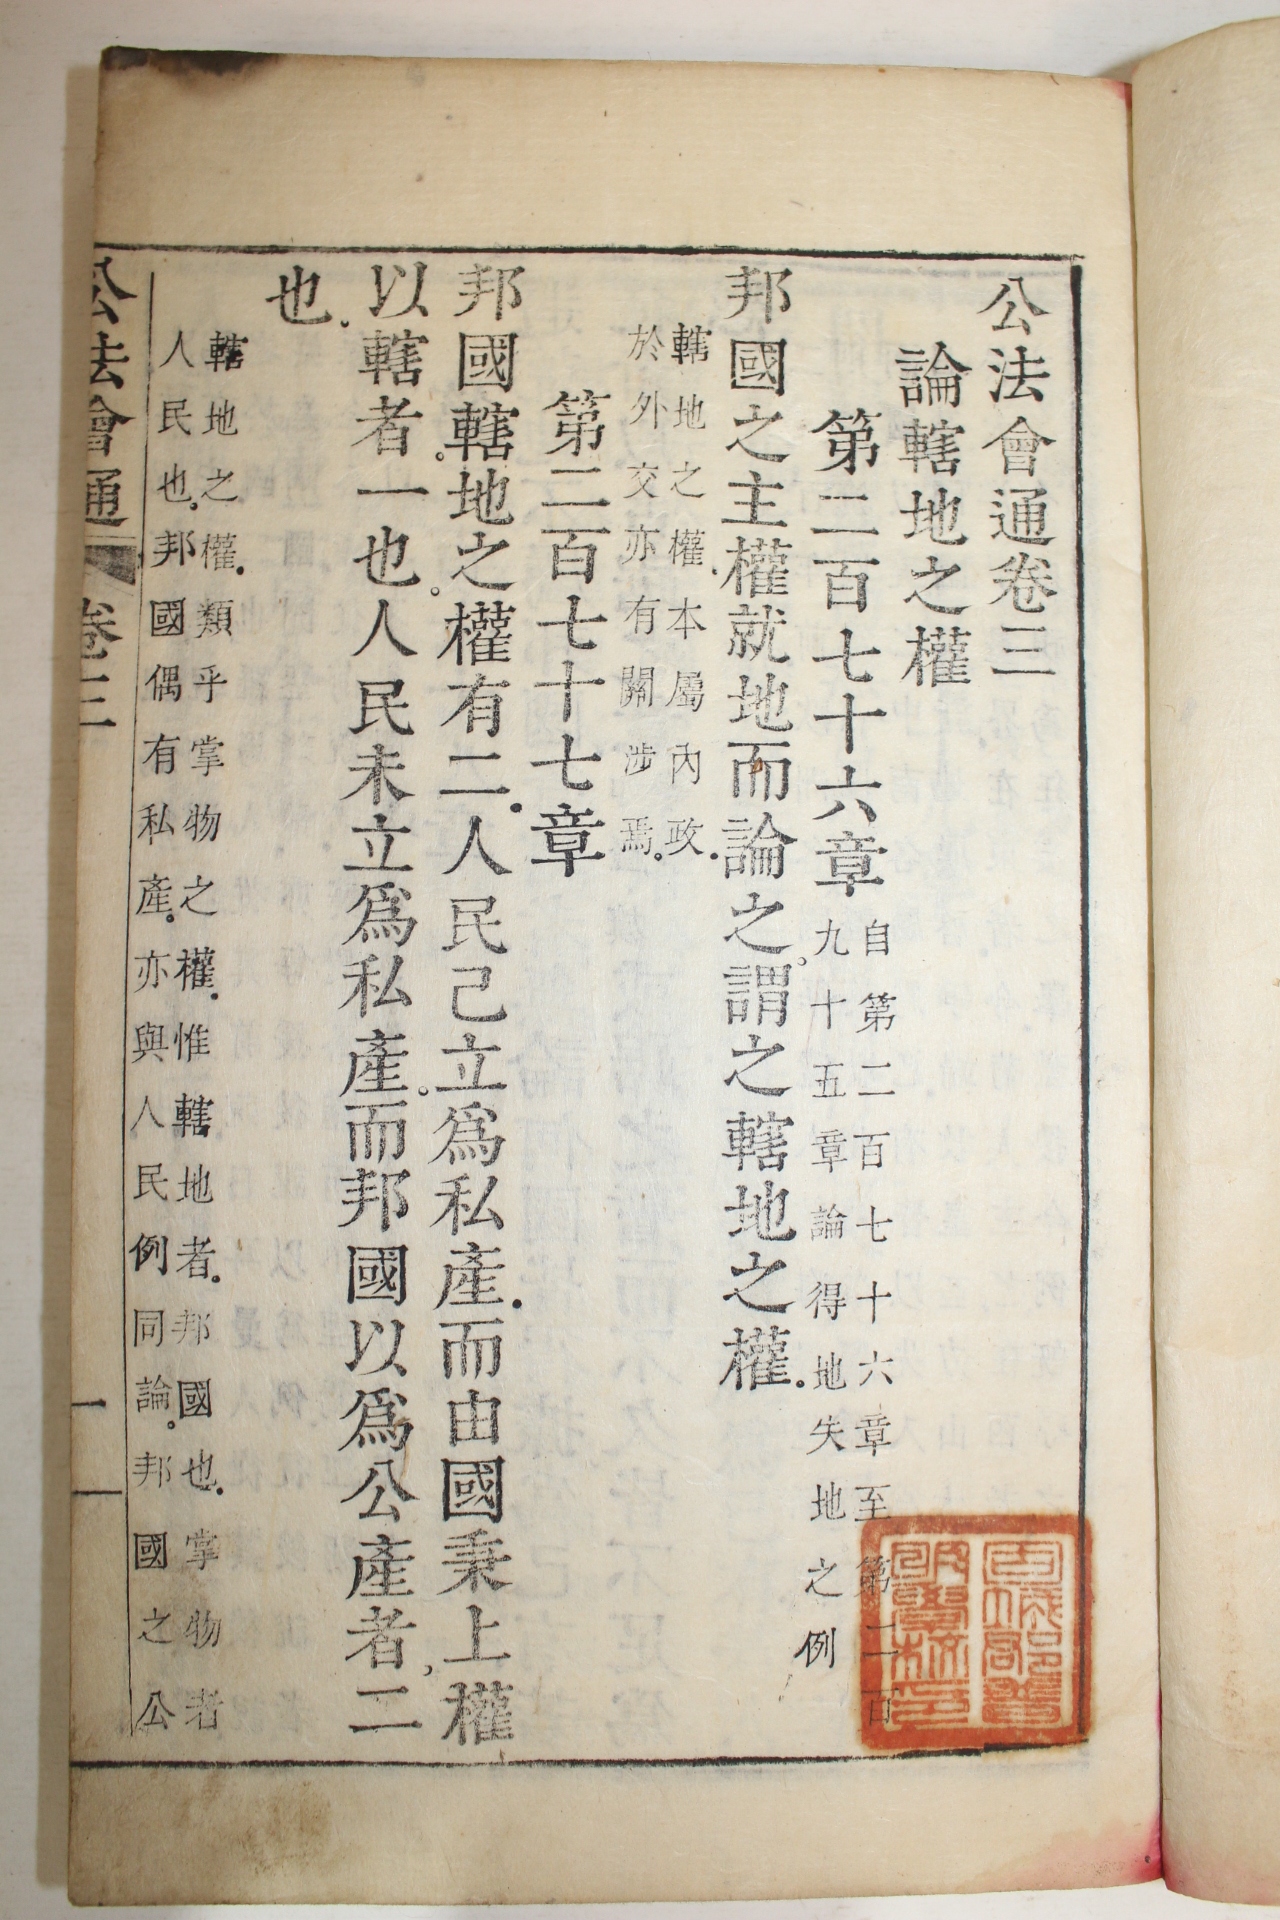 公法會通卷三
論轄地之權
第二百七十六章
自第二百七十六章至第二百
九十五章論得地失地之例
邦國之主權就地而論之。謂之轄地之權.
轄地之權.本屬內政.
於外交亦有關涉焉.
第二百七十七章
邦國轄地之權有二.人民己立爲私產.而由國秉上權
以轄者。一也。人民未立爲私產。而邦國以爲公產者,二
也.
轄地之權.類乎掌物之權.惟轄地者.邦國也.掌物者
人民也.邦國偶有私產.亦與人民例同論.邦國之公
公法會通 卷三 一